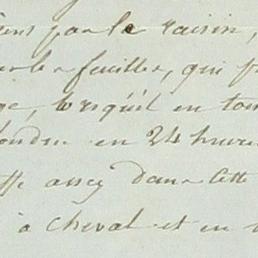 par le raisin,
feuilles, qui
lorsqu'il en
en 24 heures
assez dans cette
à cheval et en